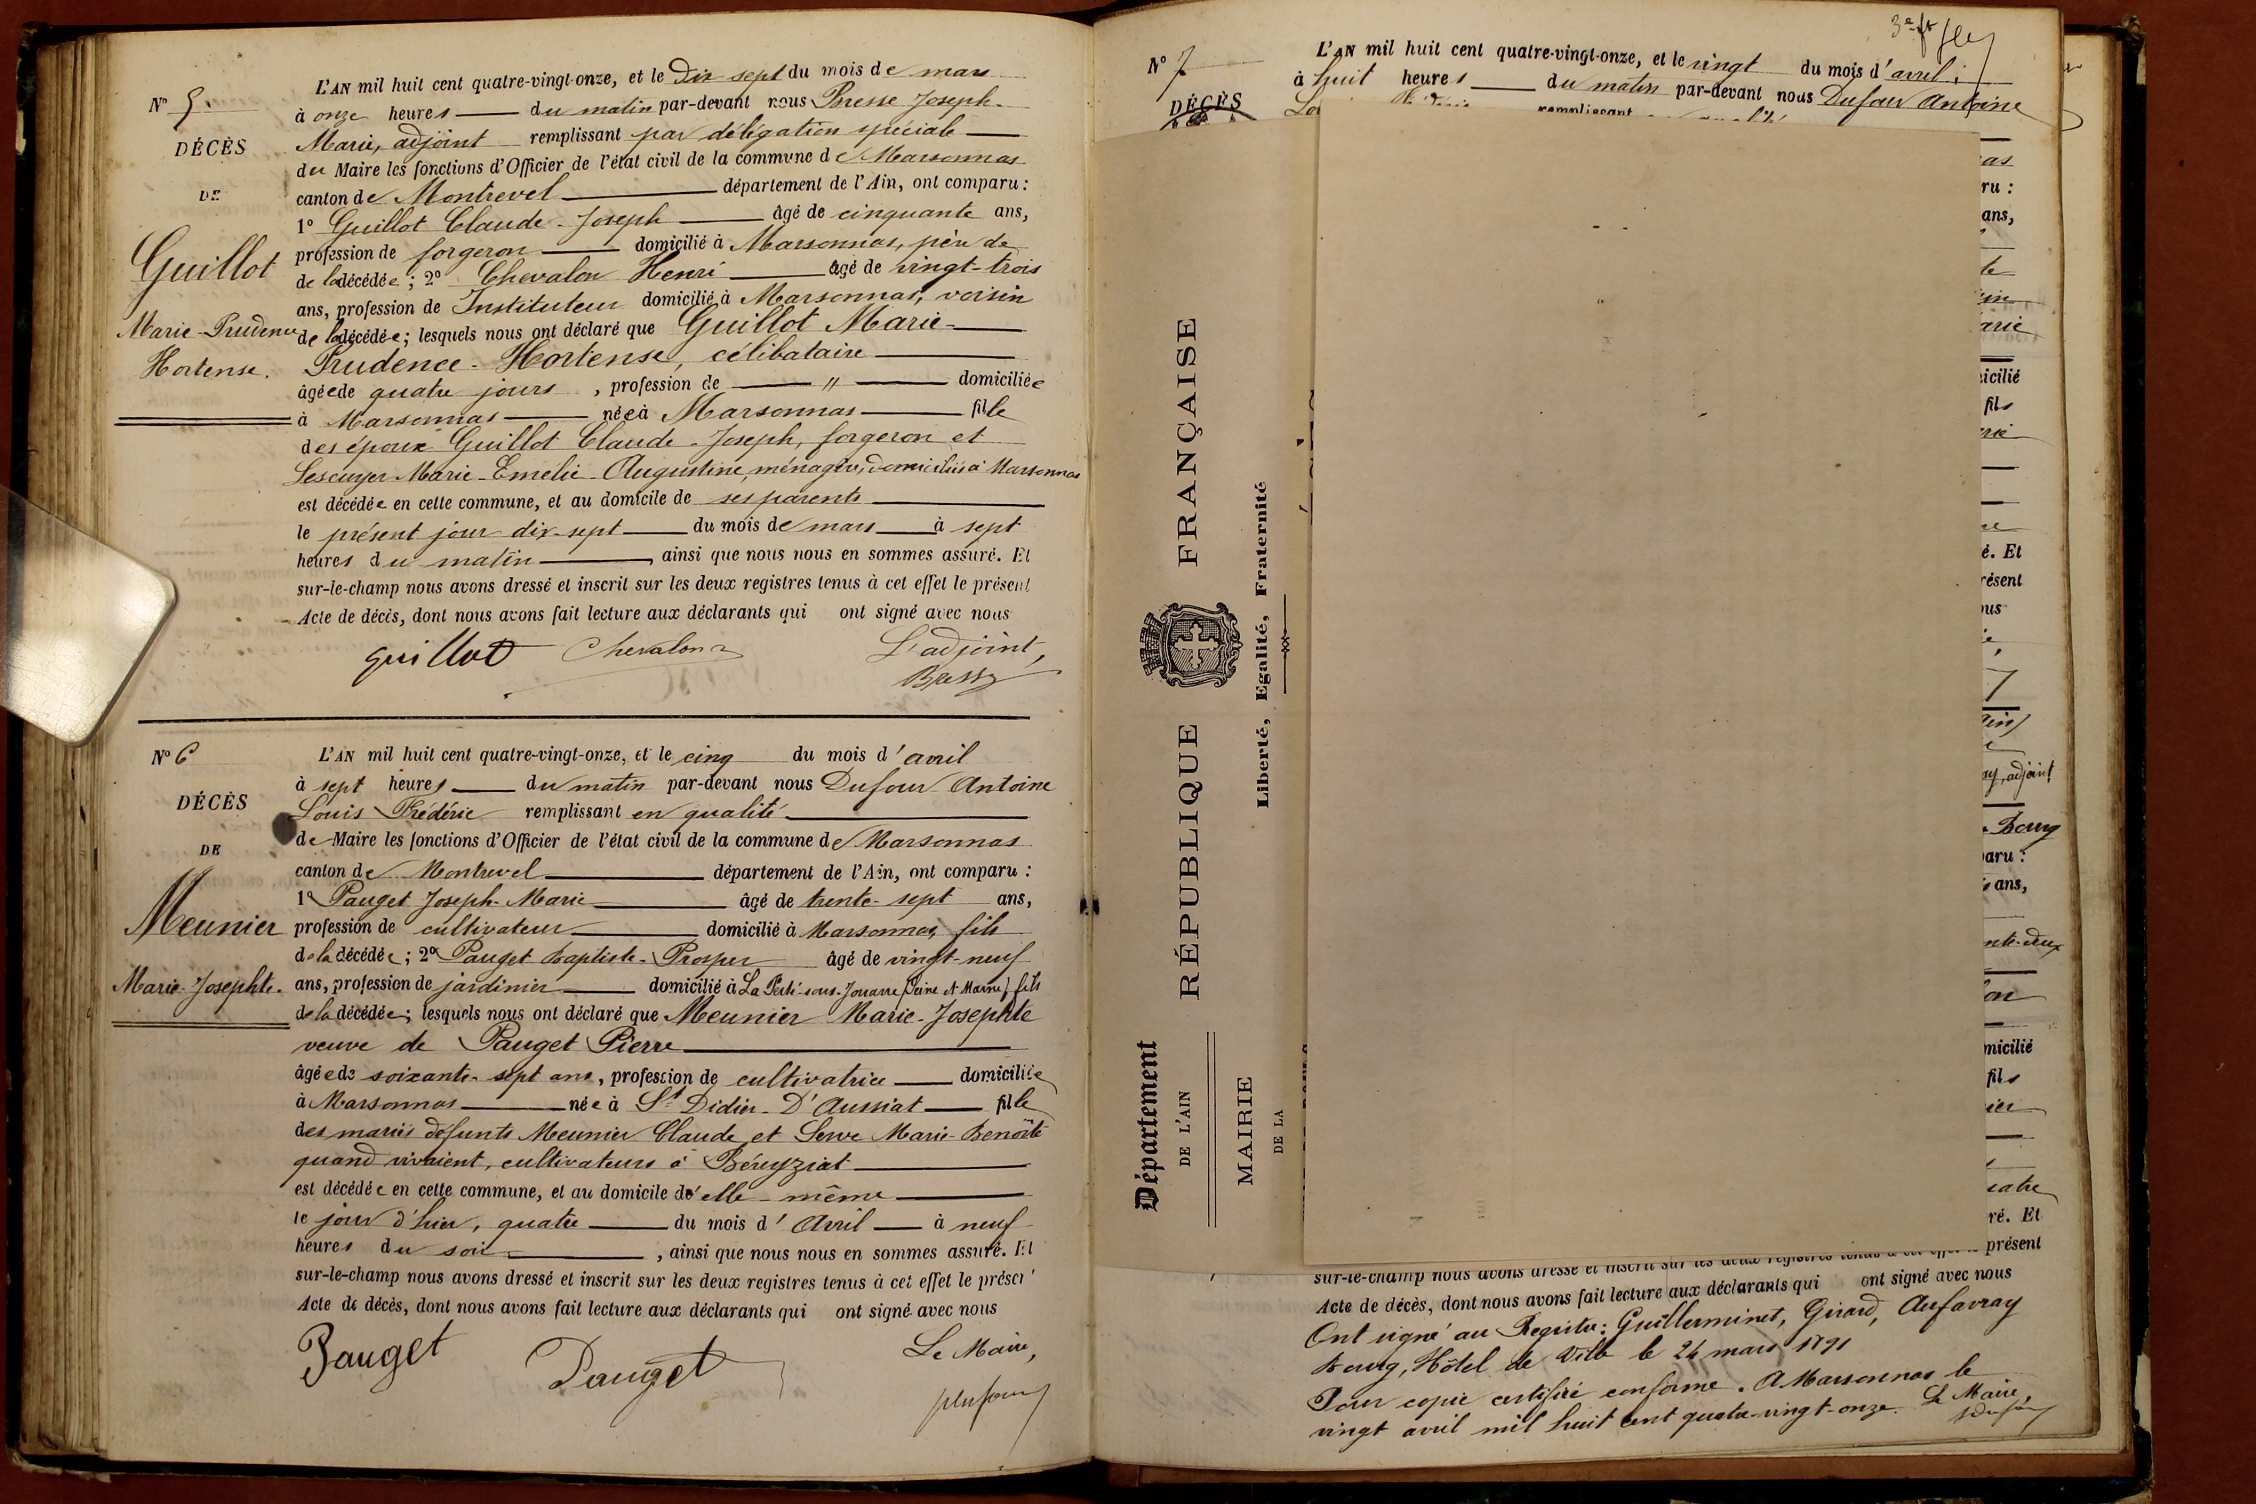 N° 5.
DÉCÈS
DE
Guillot
Marie-Prudence
Hortense.
L'AN mil huit cent quatre-vingt-onze, et le Dix sept du mois de mars
à onze heures du matin par-devant nous Bresse Joseph-
Marie, adjoint remplissant par délégation spéciale
du Maire les fonctions d'Officier de l'état civil de la commune de Marsonnas
canton de Montrevel département de l'Ain, ont comparu :
1° Guillot Claude-Joseph âgé de cinquante ans,
profession de forgeron domicilié à Marsonnas, père de
de la décédée ; 2° Chevalon Henri âgé de vingt-trois
ans, profession de Instituteur domicilié à Marsonnas, voisin
de la décédée ; lesquels nous ont déclaré que Guillot Marie-
Prudence-Hortense, célibataire
âgée de quatre jours, profession de " domiciliée
à Marsonnas née à Marsonnas fille
des époux Guillot Claude-Joseph, forgeron et
Lescuyer Marie-Emelie-Augustine, ménagère, domiciliés à Marsonnas
est décédée en cette commune, et au domicile de ses parents
le présent jour dix-sept du mois de mars à sept
heures du matin, ainsi que nous nous en sommes assuré. Et
sur-le-champ nous avons dressé et inscrit sur les deux registres tenus à cet effet le présent
Acte de décès, dont nous avons fait lecture aux déclarants qui ont signé avec nous
Guillot Chevalon L'adjoint,
N° 6
DÉCÈS
DE
Meunier
Marie-Josephte.
L'AN mil huit cent quatre-vingt-onze, et le cinq du mois d'avril
à sept heures du matin par-devant nous Dufour Antoine
Louis Frédéric remplissant en qualité
de Maire les fonctions d'Officier de l'état civil de la commune de Marsonnas
canton de Montrevel département de l'Ain, ont comparu :
1° Pauget Joseph-Marie âgé de trente-sept ans,
profession de cultivateur domicilié à Marsonnas, fils
de la décédée ; 2° Pauget Baptiste-Prosper âgé de vingt-neuf
ans, profession de jardinier domicilié à La Ferté-sous-Jouarre (Seine et Marne) fils
de la décédée ; lesquels nous ont déclaré que Meunier Marie-Josephte
veuve de Pauget Pierre
âgée de soixante-sept ans, profession de cultivatrice domiciliée
à Marsonnas née à St Didier-D'Aussiat fille
des mariés défunts Meunier Claude et Serve Marie-Benoîte
quand vivaient, cultivateurs à Béreyziat
est décédée en cette commune, et au domicile d'elle-même
le jour d'hier, quatre du mois d'Avril à neuf
heures du soir, ainsi que nous nous en sommes assuré. Et
sur-le-champ nous avons dressé et inscrit sur les deux registres tenus à cet effet le présent
Acte de décès, dont nous avons fait lecture aux déclarants qui ont signé avec nous
Pauget Pauget Le Maire,
N° 7
DÉCÈS
L'AN mil huit cent quatre-vingt-onze, et le vingt du mois d'avril
à huit heures du matin par-devant nous Dufour Antoine
remplissant
RÉPUBLIQUE FRANÇAISE
Liberté, Egalité, Fraternité
Département
DE L'AIN
MAIRIE
DE LA
nas
ru :
ans,
arie
icilié
fils
é. Et
résent
ous
adjoint
Bourg
paru :
ans,
nte-deux
micilié
fils
ré. Et
présent
sur-le-champ nous avons dressé et inscrit sur les deux registres tenus à cet effet le
Acte de décès, dont nous avons fait lecture aux déclarants qui ont signé avec nous
Ont signé au Registre : Guillerminet, Girard, Aufavray
Bourg, Hôtel de Ville le 24 mars 1891
Pour copie certifiée conforme. A Marsonnas le
vingt avril mil huit cent quatre-vingt-onze. Le Maire,